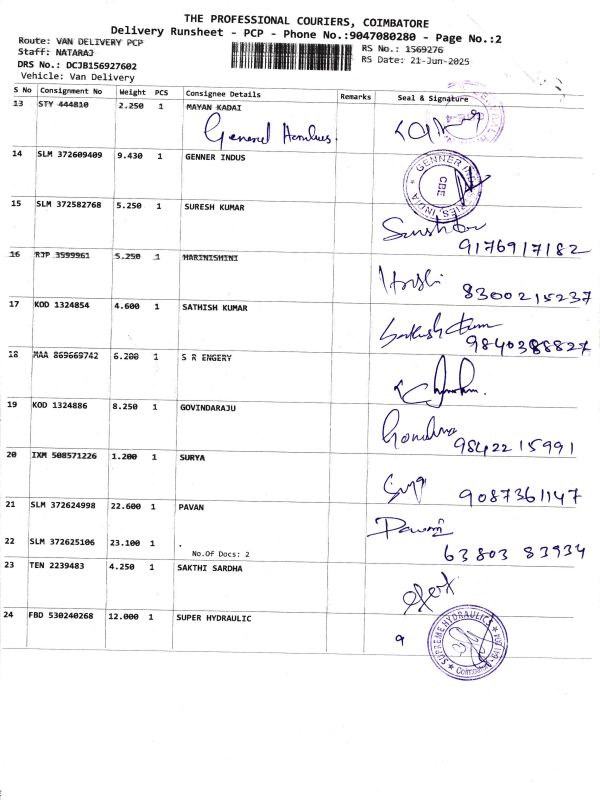 THE PROFESSIONAL COURIERS, COIMBATORE
Delivery Runsheet - PCP - Phone No.:9047080280 - Page No.:2
Route: VAN DELIVERY PCP
Staff: NATARAJ
DRS No.: DCJB156927602
Vehicle: Van Delivery
RS No.: 1569276
RS Date: 21-Jun-2025
S No Consignment No Weight PCS Consignee Details Remarks Seal & Signature
13 STY 444810 2.250 1 MAYAN KADAI
General
14 SLM 372609409 9.430 1 GENNER INDUS
GENNER INDUSTRIES, INDIA
CBE
15 SLM 372582768 5.250 1 SURESH KUMAR
9176917182
16 RJP 3599961 5.250 1 HARINISHINI
8300215237
17 KOD 1324854 4.600 1 SATHISH KUMAR
Sathish Kum
9840388827
18 MAA 869669742 6.200 1 S R ENGERY
19 KOD 1324886 8.250 1 GOVINDARAJU
9842215991
20 IXM 508571226 1.200 1 SURYA
9087361147
21 SLM 372624998 22.600 1 PAVAN
22 SLM 372625106 23.100 1 .
No.Of Docs: 2
63803 83934
23 TEN 2239483 4.250 1 SAKTHI SARDHA
24 FBD 530240268 12.000 1 SUPER HYDRAULIC
9
SUPREME HYDRAULICS
Coimbatore